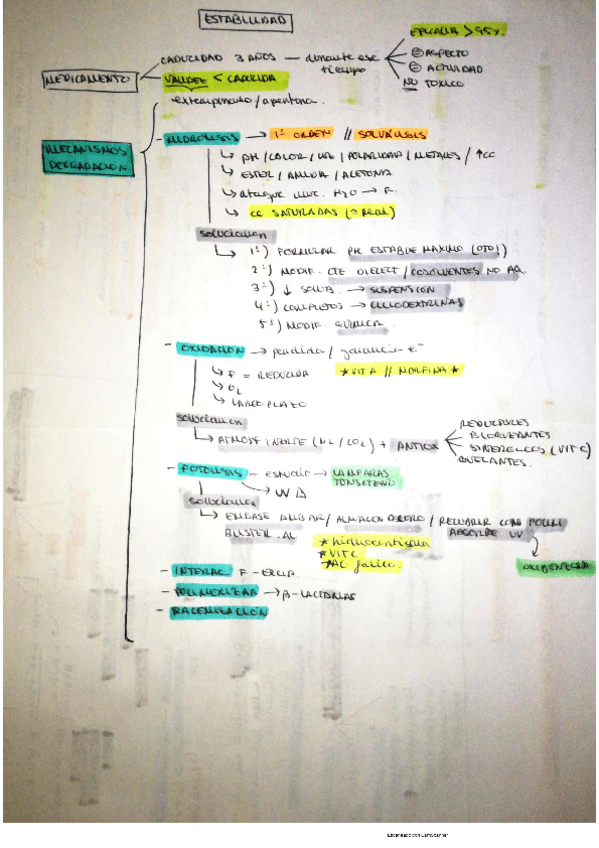 ESTABILIDAD
MEDICAMENTO
CADUCIDAD 3 AÑOS — durante ese tiempo
EFICACIA > 95%
= ASPECTO
= ACTIVIDAD
NO TÓXICO
VALIDEZ < CADUCIDA
extemporáneo / apertura.
MECANISMOS DEGRADACIÓN
- HIDRÓLISIS → 1º ORDEN // SOLVÓLISIS
↳ pH / CALOR / / POLARIDAD / METALES / ↑CC
↳ ESTER / AMIDA /
↳ ataque nuc. H2O → F.
↳ CC SATURADAS
solucionan
↳ 1º) FORMULAR PH ESTABLE MÁXIMO (OJO!)
2º) MODIF. CTE DIELECT / COSOLVENTES NO AQ.
3º) ↓ SOLUB. → SUSPENSIÓN
4º) COMPLEJOS → CICLODEXTRINAS
5º) MODIF. QUÍMICA.
- OXIDACIÓN → pérdida / ganancia e-
↳ F = REDUCIDA * VIT A // MORFINA *
↳ O2
↳ LARGO PLAZO
solucionan
↳ ATMOSF INERTE (N2 / CO2) + ANTIOX
REDUCTORES
BLOQUEANTES
SINÉRGICOS (VIT C)
QUELANTES.
- FOTÓLISIS - estudio → LÁMPARAS
→ UV
solucionan
↳ ENVASE ÁMBAR / / RECUBRIR CON
BLISTER AL ABSORBE UV
* hidrocortisona
* VIT C
* AC fólico.
- INTERAC. F - EXCIP.
- POLIMERIZAR → β-LACTAMAS
- RACEMIZACIÓN
Escaneado con CamScanner